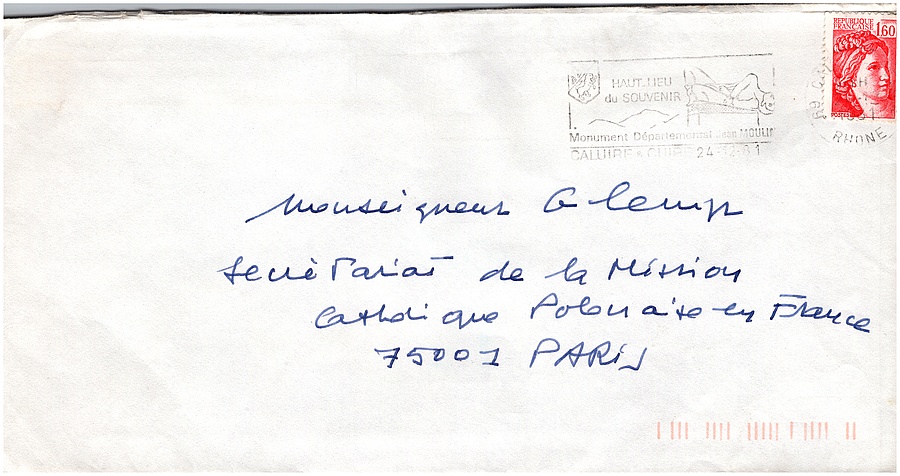 REPUBLIQUE
FRANÇAISE
1,60
POSTES
HAUT-LIEU
du SOUVENIR
Monument Départemental Jean MOULIN
CALUIRE & CUIRE 24-12-81
69
1981
RHONE
Monseigneur
Secrètariat de la Mission
Catholique Polonaise en France
75001 PARIS